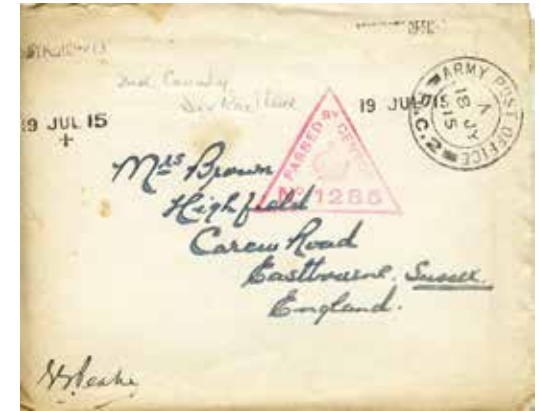 2nd Cavalry
19 JUL 15
19 JUL 15
ARMY POST OFFICE
18 JY
15
PASSED BY CENSOR
No 1285
Mrs Brown
Highfield
Carew Road
Eastbourne. Sussex.
England.